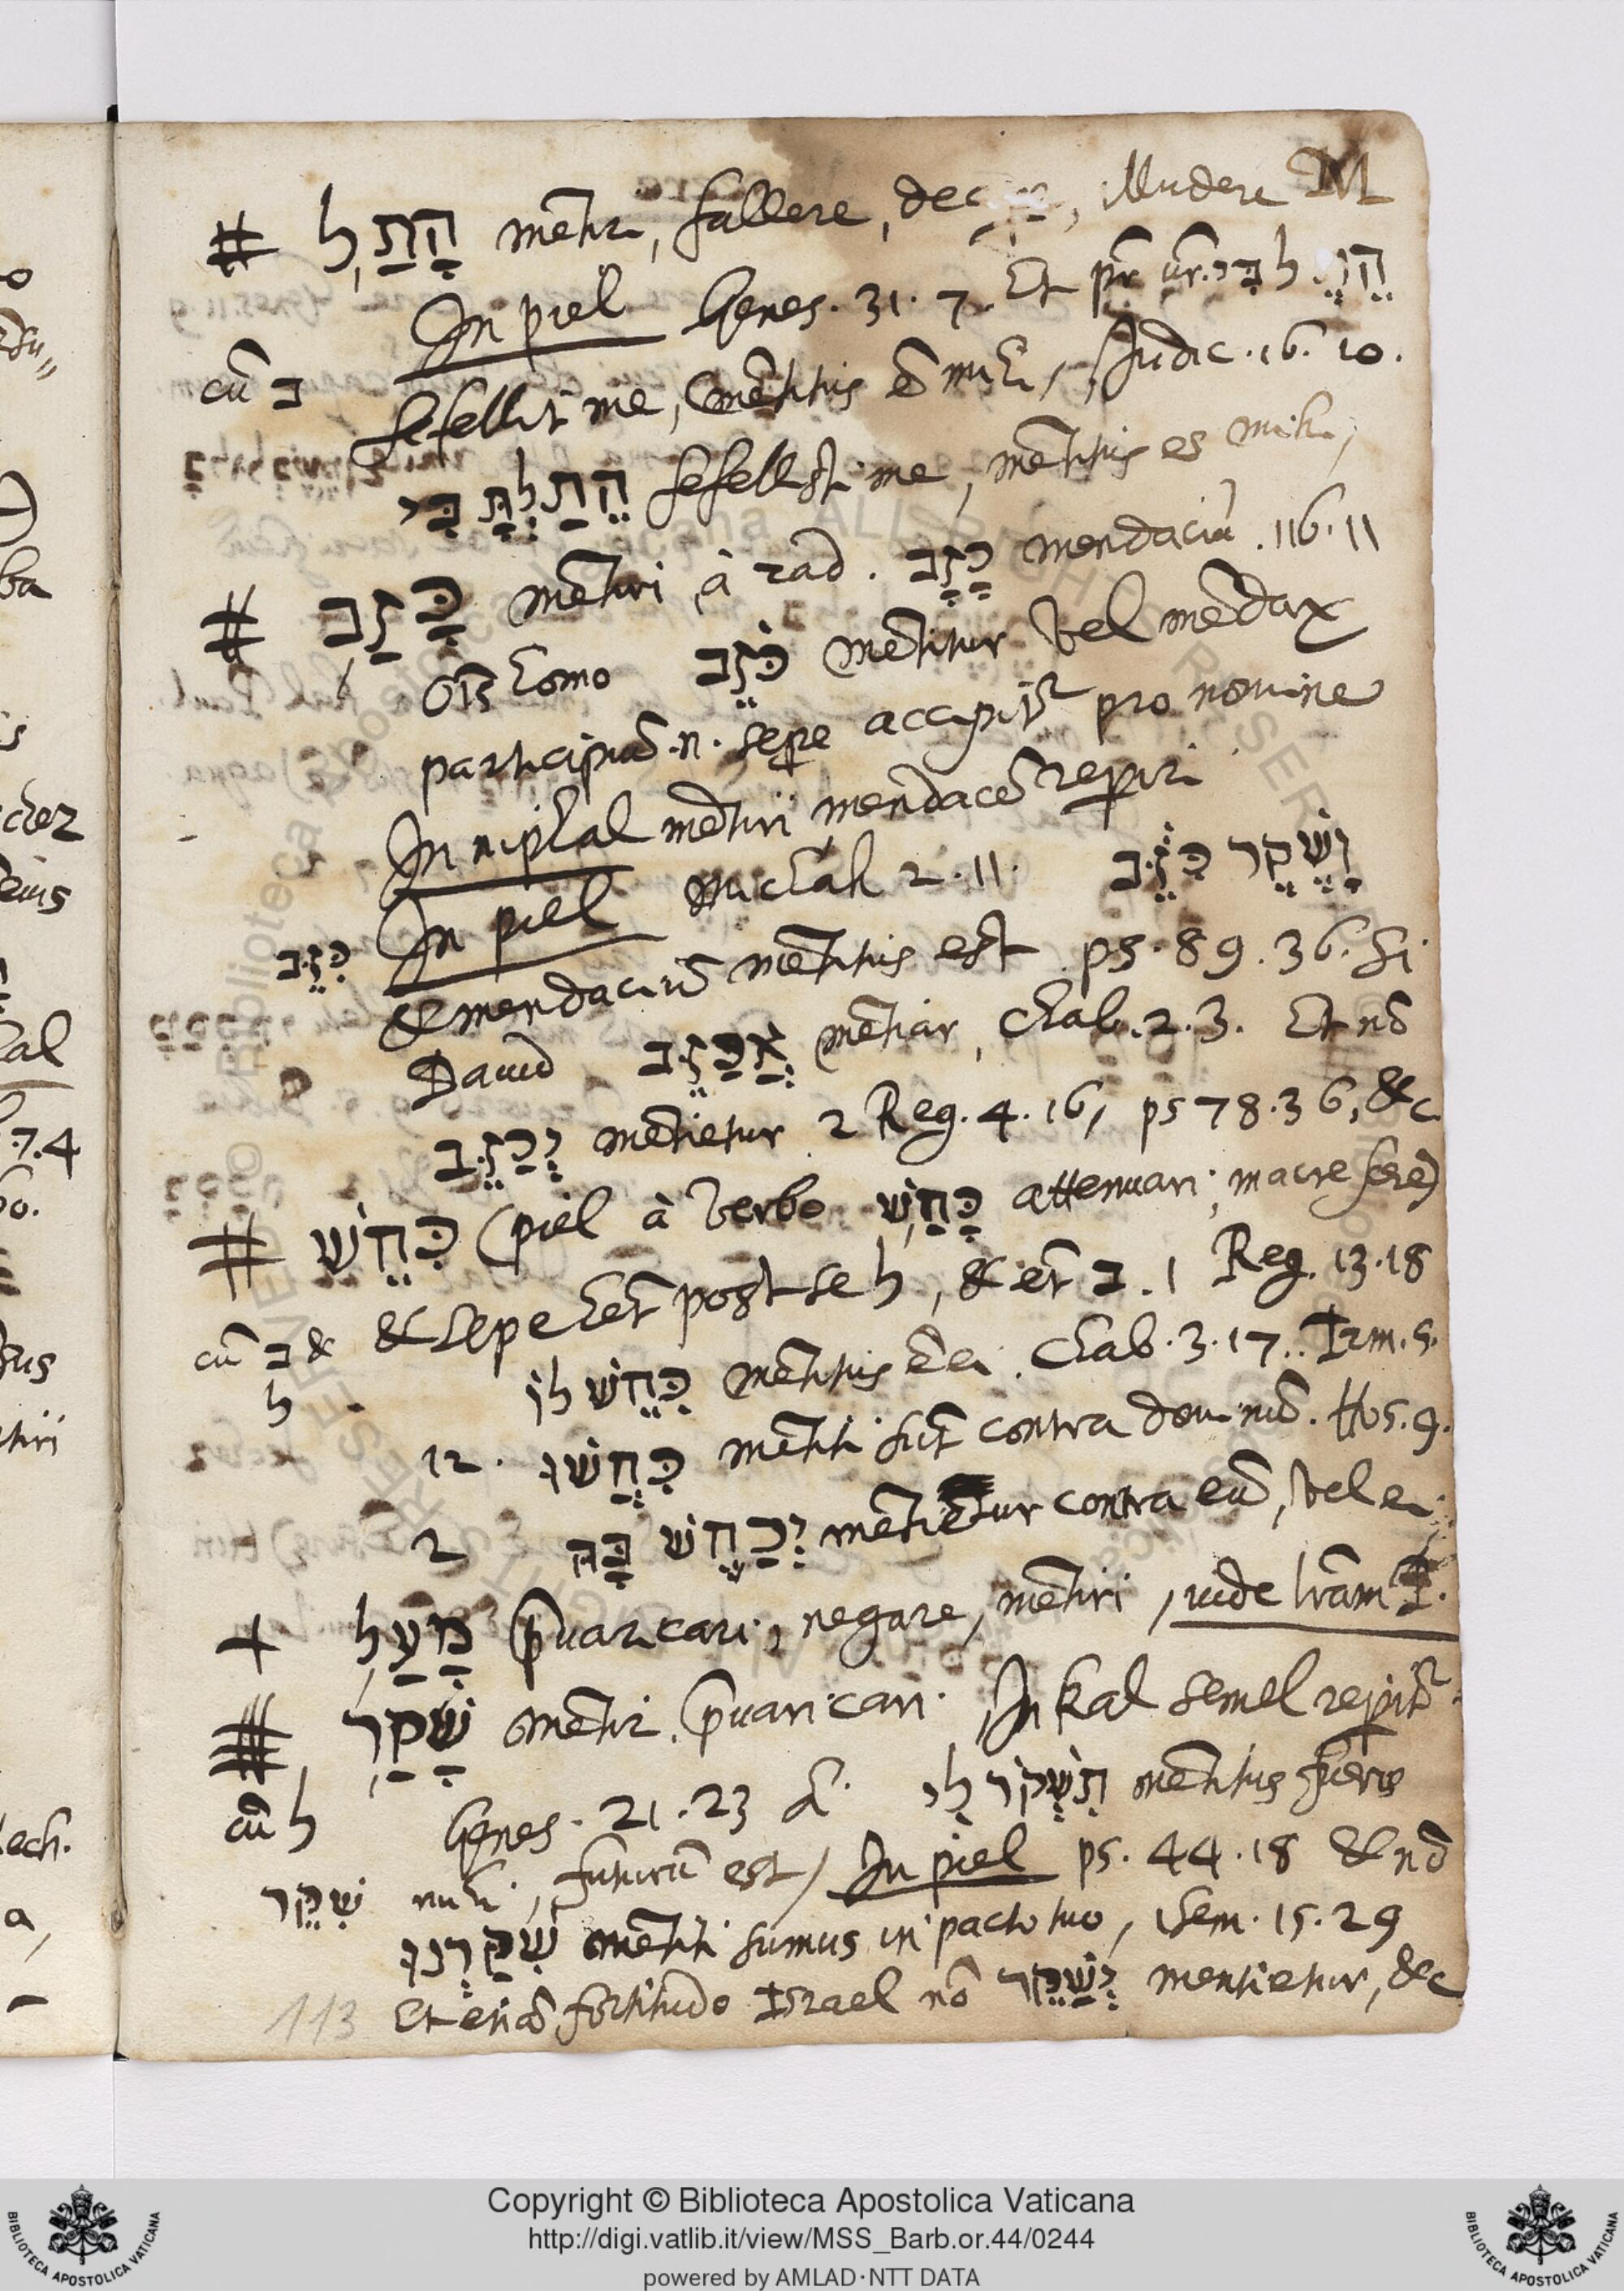 # הָתַל mẽtiri, fallere, dec , illudere M
In piel Genes. 31. 7. Et pr̃ ur̃. הֵתֶל בִּי
cũ ב fefellit me, mẽtitus ẽ mihi, Judic. 16. 10.
הֵתַלְתָּ בִּי fefellisti me, mẽtitus es mihi,
# כָּזַב mẽtiri, à rad. כָּזָב mendaciũ. 116. 11
oĩs homo כֹּזֵב mẽtitur vel mẽdax
participiũ .n. sepe accipitr̃ pro nomine
In niphal mẽtiri, mendacẽ reperiri
In piel Michah 2. 11. וָשֶׁקֶר כִּזֵּב
כִּזֵּב & mendaciũ mẽtitus est. ps. 89. 36. si
David אֲכַזֵּב mẽtiar, Chab. 2. 3. Et nõ
יְכַזֵּב mẽtietur 2 Reg. 4. 16, ps 78. 36, &c.
# כִּחֵשׁ (piel à verbo כָּחַשׁ attenuari, macrescere)
cũ ב & & sepe het̃ post se ל, & et̃ ב. 1 Reg. 13. 18
ל כִּחֵשׁ לוֹ mẽtitus ẽ ei. Chab. 3. 17. Irm. 5.
12. כִּחֲשׁוּ mẽtiti sũt contra dominũ. Hos. 9.
2 יְכַחֶשׁ בָּהּ mẽtietur contra eũ, vel ei
+ מָעַל p̃varicari, negare, mẽtiri, vide lr̃am I.
# שָׁקַר mẽtiri. p̃varicari. In kal semel repitr̃.
cũ ל Genes. 21. 23 תִּשְׁקֹר לִי mẽtitus fueris
שִׁקֵּר mihi, futurũ est, In piel ps. 44. 18 & nõ
שִׁקַּרְנוּ mẽtiti sumus in pacto tuo, 1 Sem. 15. 29
113 Et etiã fortitudo Israel nõ יְשַׁקֵּר mentietur, &c
Copyright © Biblioteca Apostolica Vaticana
http://digi.vatlib.it/view/MSS_Barb.or.44/0244
powered by AMLAD·NTT DATA
BIBLIOTECA APOSTOLICA VATICANA
BIBLIOTECA APOSTOLICA VATICANA